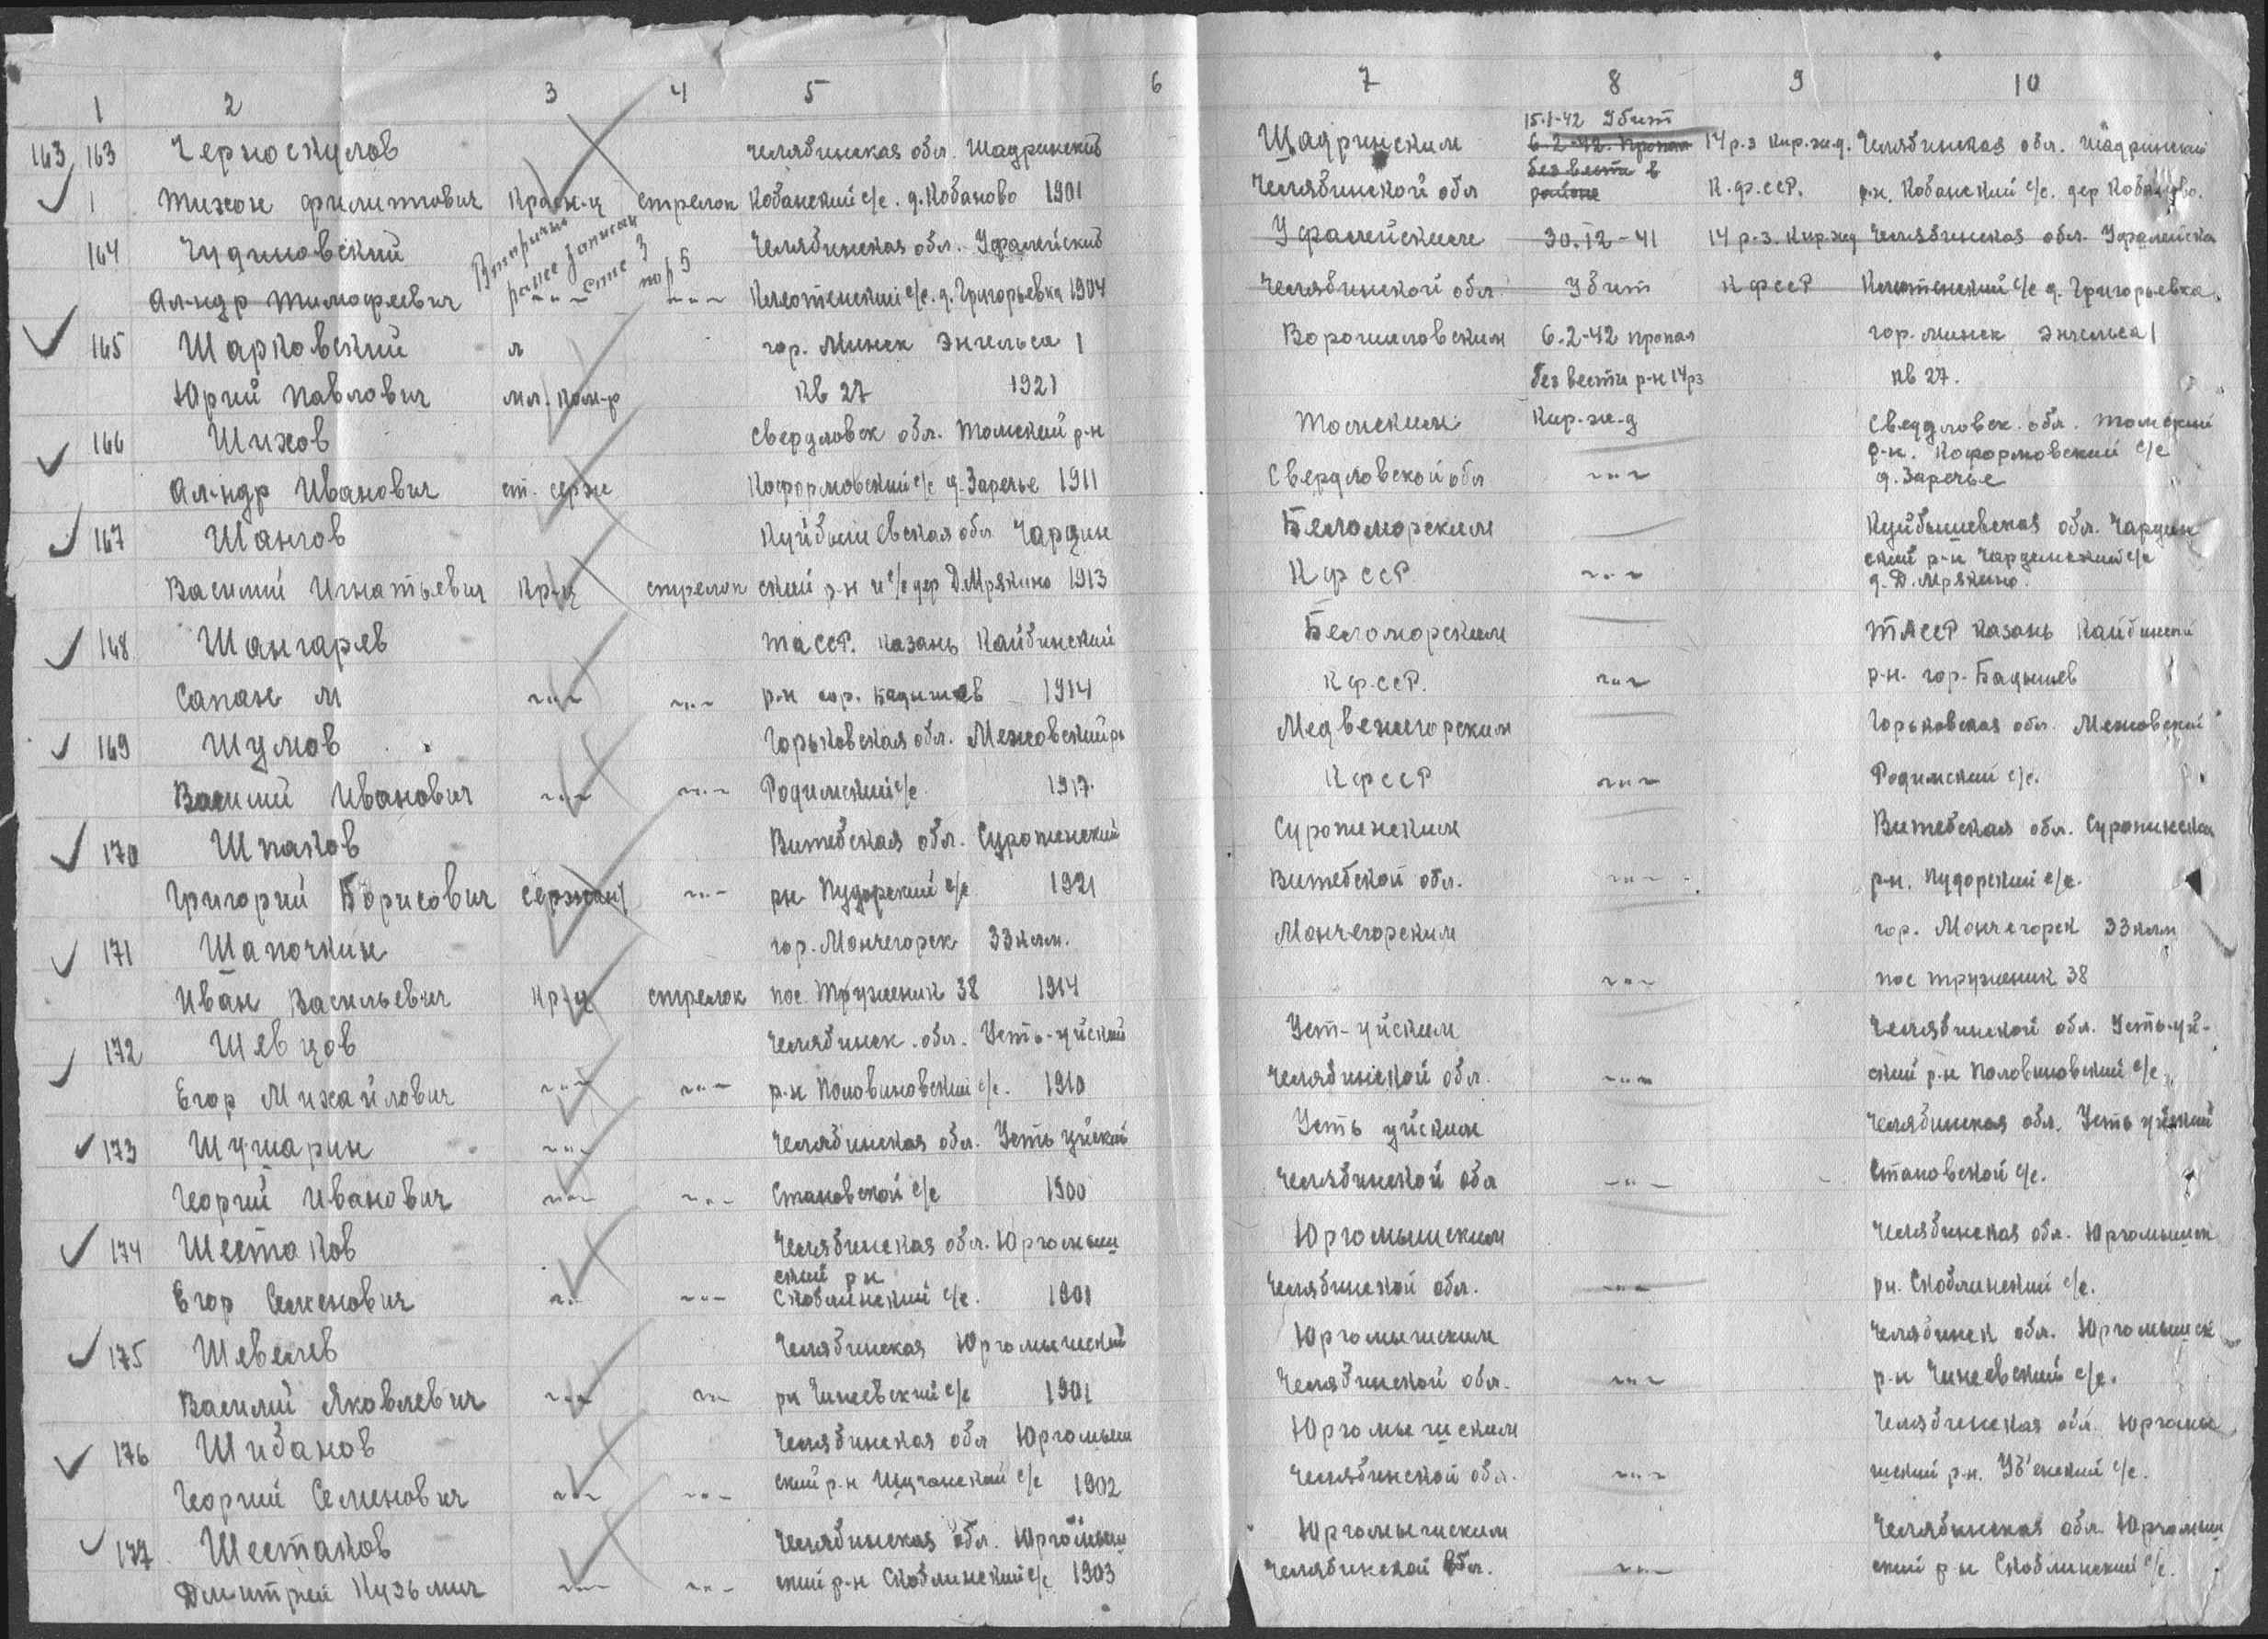 1 2 3 4 5 6 7 8 9 10
15.1-42 Убит
163 163 Черноскулов Челябинская обл. Шадринский Шадринским 6-2-42. пропал 14 р.з Кир.ж.д. Челябинская обл. Шадринский
без вести в
1 Тихон Филиппович Красн-ц стрелок Кабанский с/с. д. Кобаново 1901 Челябинской обл районе К.ф.ССР. р-н. Кобанский с/с. дер Кобаново.
164 Чудиновский Вторично ранее записан Челябинская обл. Уфалейский Уфалейским 30.12-41 14 р.з. Кир.жд Челябинская обл. Уфалейска
Ал-ндр Тимофеевич стр 3 пор 5 Клеопенский с/с. д. Григорьевка 1904 Челябинской обл. Убит КфССР Клеопенский с/с д. Григорьевка.
165 Шарковский гор. Минск Энгельса 1 Ворошиловским 6.2-42 пропал гор. Минск Энгельса 1
Юрий Павлович мл. ком-р кв 27 1921 без вести р-н 14рз кв 27.
166 Шихов Свердловск обл. Томский р-н Томским Кир.ж-д Свердловск. обл. Томский
р-н. Коформовский с/с
Ал-ндр Иванович ст. серж Коформовский с/с д. Заречье 1911 Свердловской обл -"- д. Заречье
167 Шангов Куйбышевская обл Чардын Беломорским Куйбышевская обл. Чардын
ский р-н Чардымский с/с
Василий Игнатьевич Кр-ц стрелок ский р-н и с/с дер Д.Мрякино 1913 КфССР -"- д. Д. Мрякино.
168 Шангарев ТаССР. Казань Кайбинский Беломорским ТАССР Казань Кайбицкий
Сапан М -"- -"- р-н гор. Бадышев 1914 Кф.ССР. -"- р-н. гор. Бадышев
169 Шумов Горьковская обл. Межовский рн Медвежегорским Горьковская обл. Межовский
Василий Иванович -"- -"- Родимский с/с. 1917. КфССР -"- Родимский с/с.
170 Шпаков Витебская обл. Суропинский Суропинским Витебская обл. Суропинская
Григорий Борисович сержант -"- рн Пудорский с/с 1921 Витебской обл. -"- р-н. Пудорский с/с.
171 Шапочкин гор. Мончегорск 33клм. Мончегорским гор. Мончегорск 33клм
Иван Васильевич Кр-ц стрелок пос. Труженик 38 1914 -"- пос труженик 38
172 Шевцов Челябинск. обл. Усть-уйский Уст-уйским Челябинской обл. Усть-уй-
Егор Михайлович -"- -"- р-н Половиновский с/с. 1910 Челябинской обл. -"- ский р-н Половиновский с/с.
173 Шушарин -"- Челябинская обл. Усть уйский Усть уйским Челябинская обл. Усть уйский
Георгий Иванович -"- -"- Становской с/с 1900 Челябинской обл -"- Становской с/с.
174 Шестаков Челябинская обл. Юргомыш Юргомышским Челябинская обл. Юргомышск
ский рн
Егор Семенович -"- -"- Скоблинский с/с. 1901 Челябинской обл. -"- рн. Скоблинский с/с.
175 Шевелев Челябинская Юргомышский Юргомышским Челябинск обл. Юргомышск
Василий Яковлевич -"- -"- рн Чинеевский с/с 1901 Челябинской обл. -"- р-н Чинеевский с/с.
176 Шибанов Челябинская обл Юргомыш Юргомышским Челябинская обл. Юргомы
Георгий Семенович -"- -"- ский р-н с/с 1902 Челябинской обл. -"- шский р-н. с/с.
177 Шестаков Челябинская обл. Юргомыш Юргомышским Челябинская обл. Юргомыш
Дмитрий Кузьмич -"- -"- ский р-н Скоблинский с/с 1903 Челябинской обл. -"- ский р-н Скоблинский с/с.